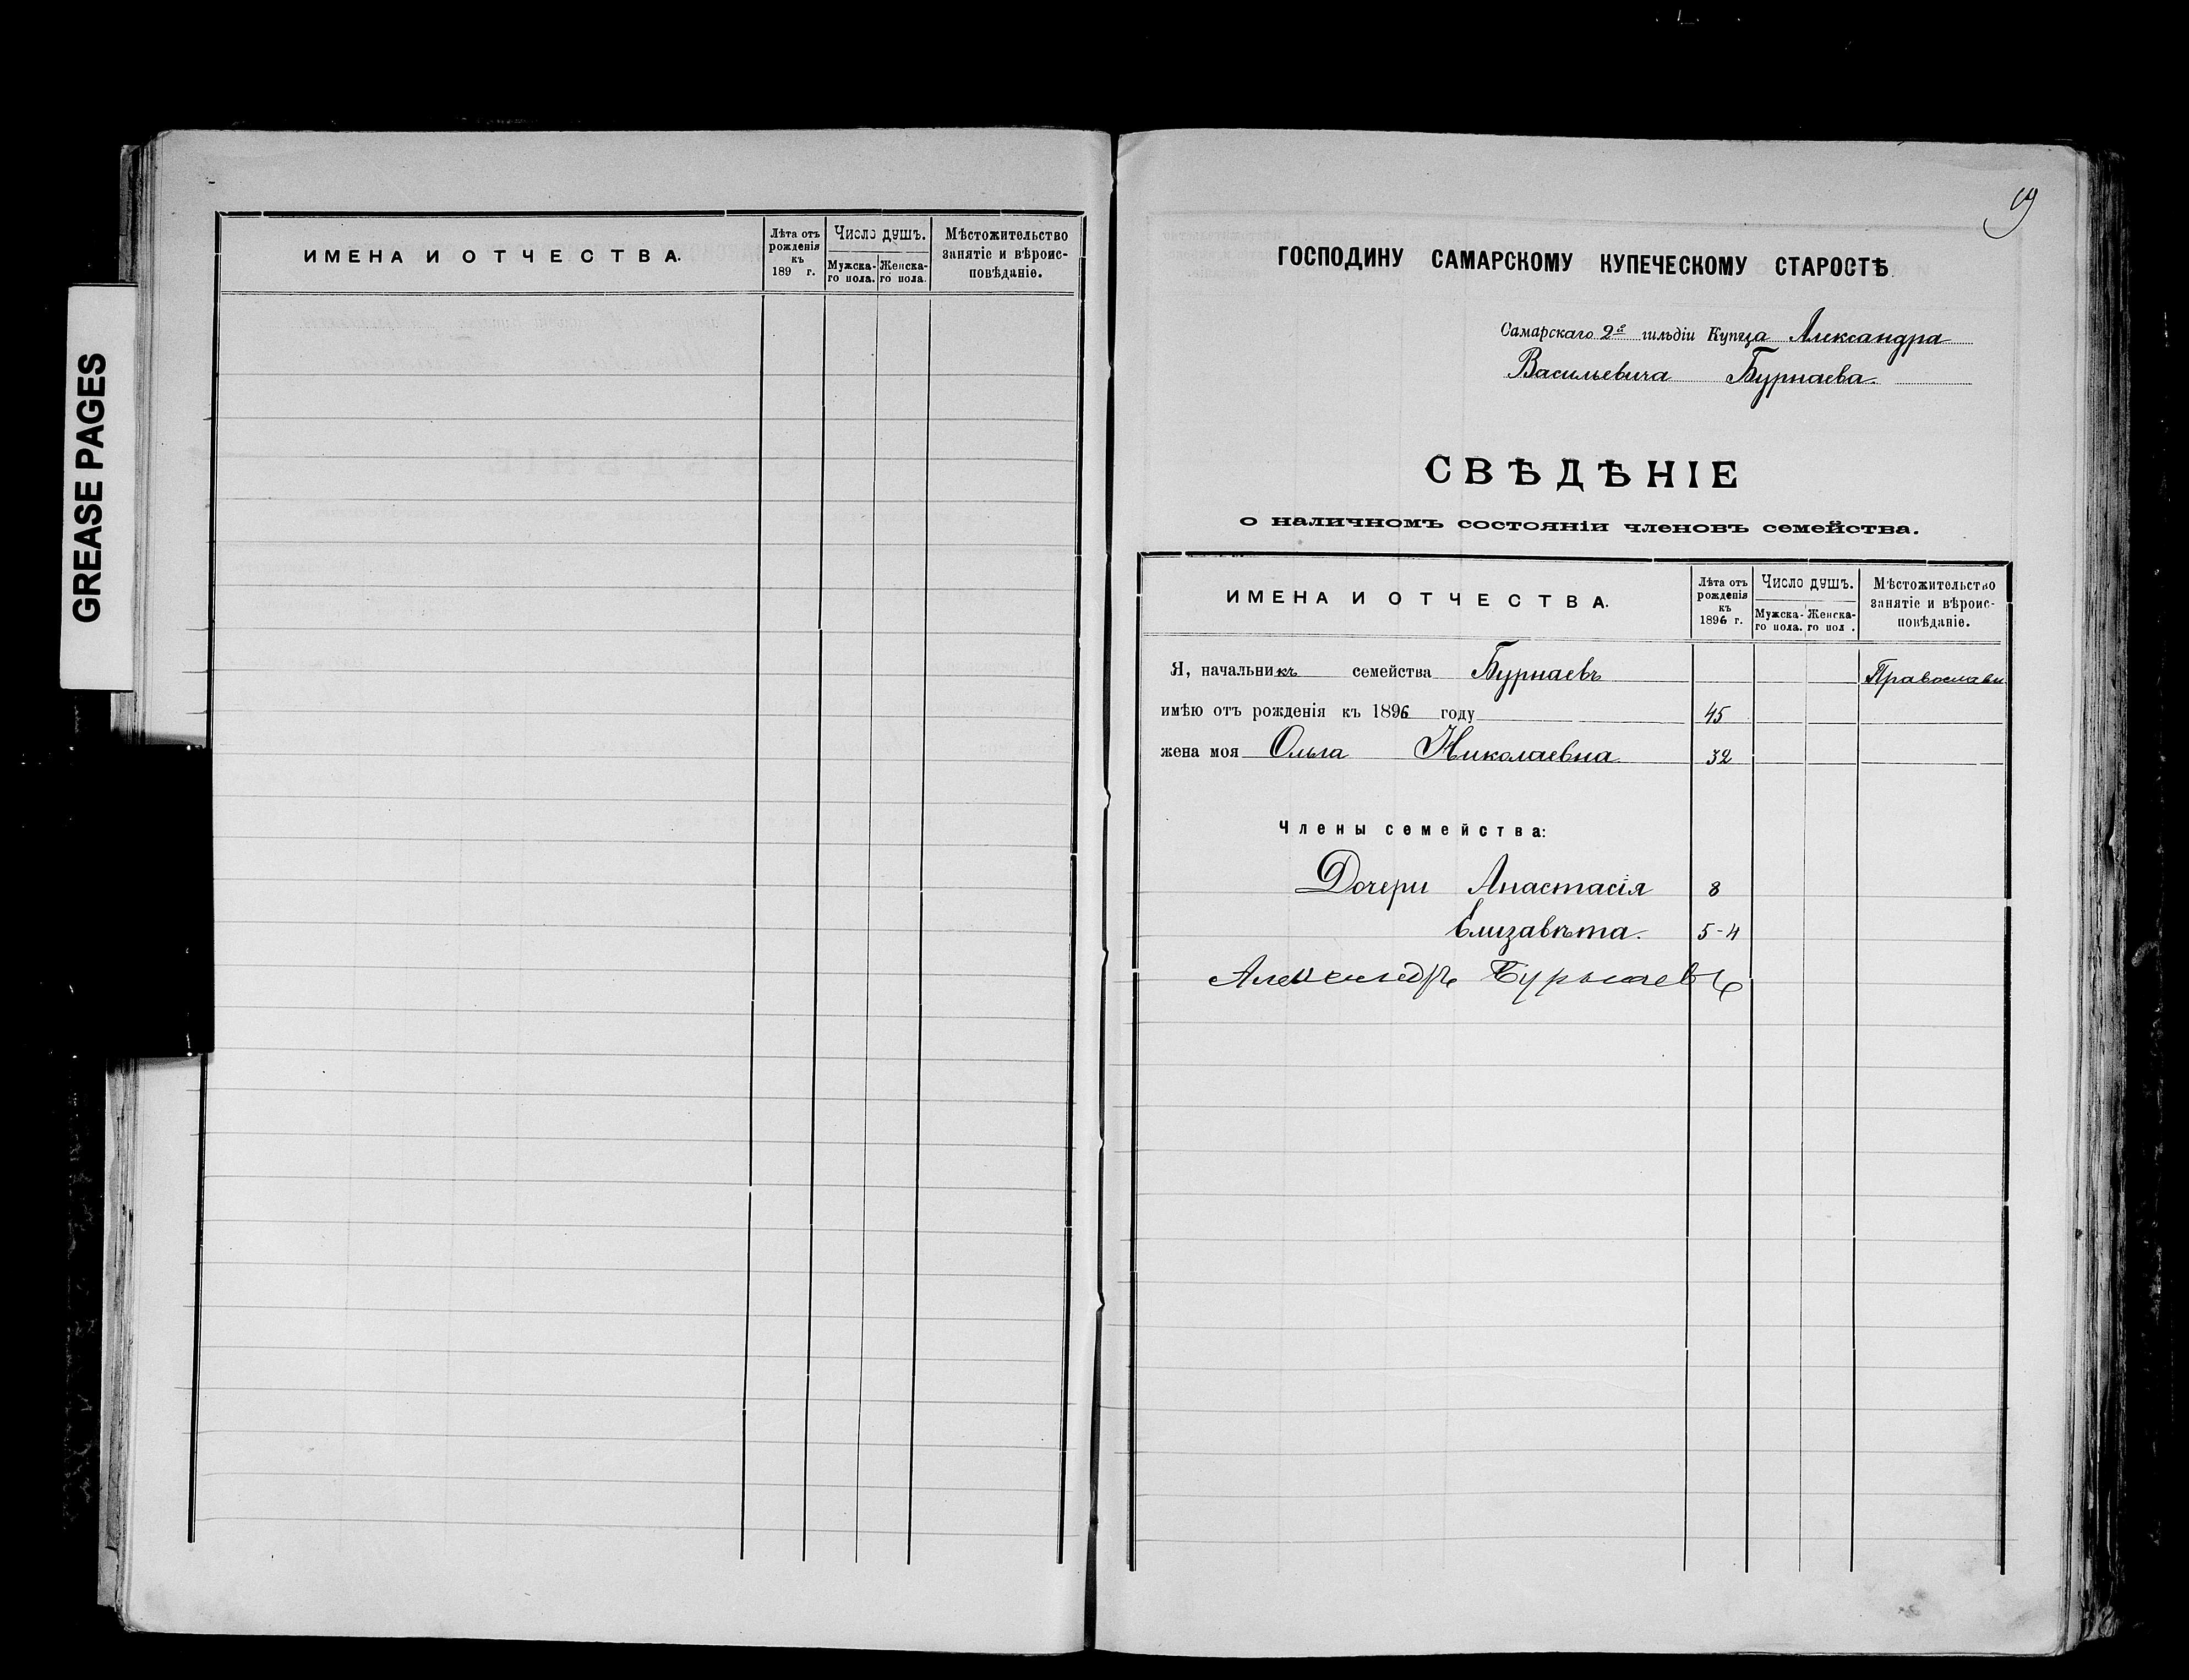 GREASE PAGES
ИМЕНА И ОТЧЕСТВА.
Лѣта отъ рожденія къ 189 г.
Число душъ.
Мужска-го пола.
Женска-го пола.
Мѣстожительство занятіе и вѣроис-повѣданіе.
19
ГОСПОДИНУ САМАРСКОМУ КУПЕЧЕСКОМУ СТАРОСТѢ
Самарскаго 2й гильдіи Купца Александра
Васильевича Бурнаева.
СВѢДѢНІЕ
о наличномъ состояніи членовъ семейства.
ИМЕНА И ОТЧЕСТВА.
Лѣта отъ рожденія къ 1896 г.
Число душъ.
Мужска-го пола.
Женска-го пол .
Мѣстожительство занятіе и вѣроис-повѣданіе.
Я, начальникъ семейства Бурнаевъ Православн
имѣю отъ рожденія къ 1896 году 45
жена моя Ольга Николаевна 32
Члены семейства:
Дочери Анастасія 8
Елизавѣта. 5-4
Александръ Бурнаевъ